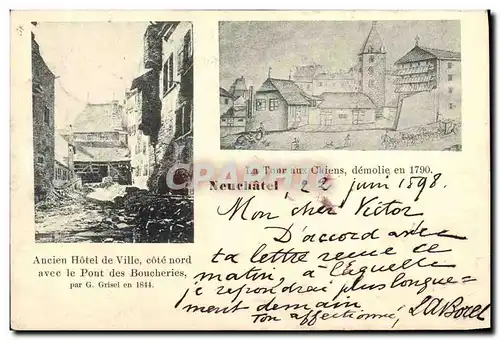 La Tour aux Chiens, démolie en 1790.
Neuchâtel, 22 juin 1898.
Mon cher Victor
D'accord avec
ta lettre reçue ce
matin, à laquelle
je repondrai plus longue=
ment demain
Ton affectionné,
Ancien Hôtel de Ville, côté nord
avec le Pont des Boucheries,
par G. Grisel en 1844.
CPA